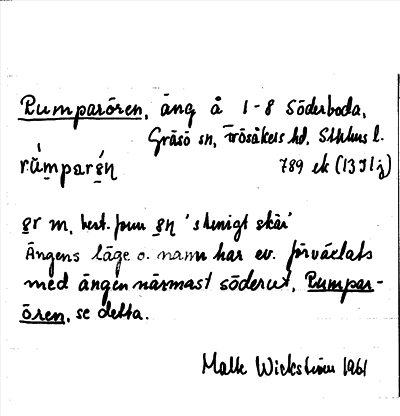 Rumparören, äng å 1-8 Söderboda,
Gräsö sn, Frösåkers hd, Sthlms l.
rŭ́mparə̣́ṇ 789 ek (13 I 1 j)
ər m, best. form ən 'stenigt skär'
Ängens läge o. namn har ev. förväxlats
med ängen närmast söderut, Rumpar-
ören, se detta.
Malte Wickström 1961